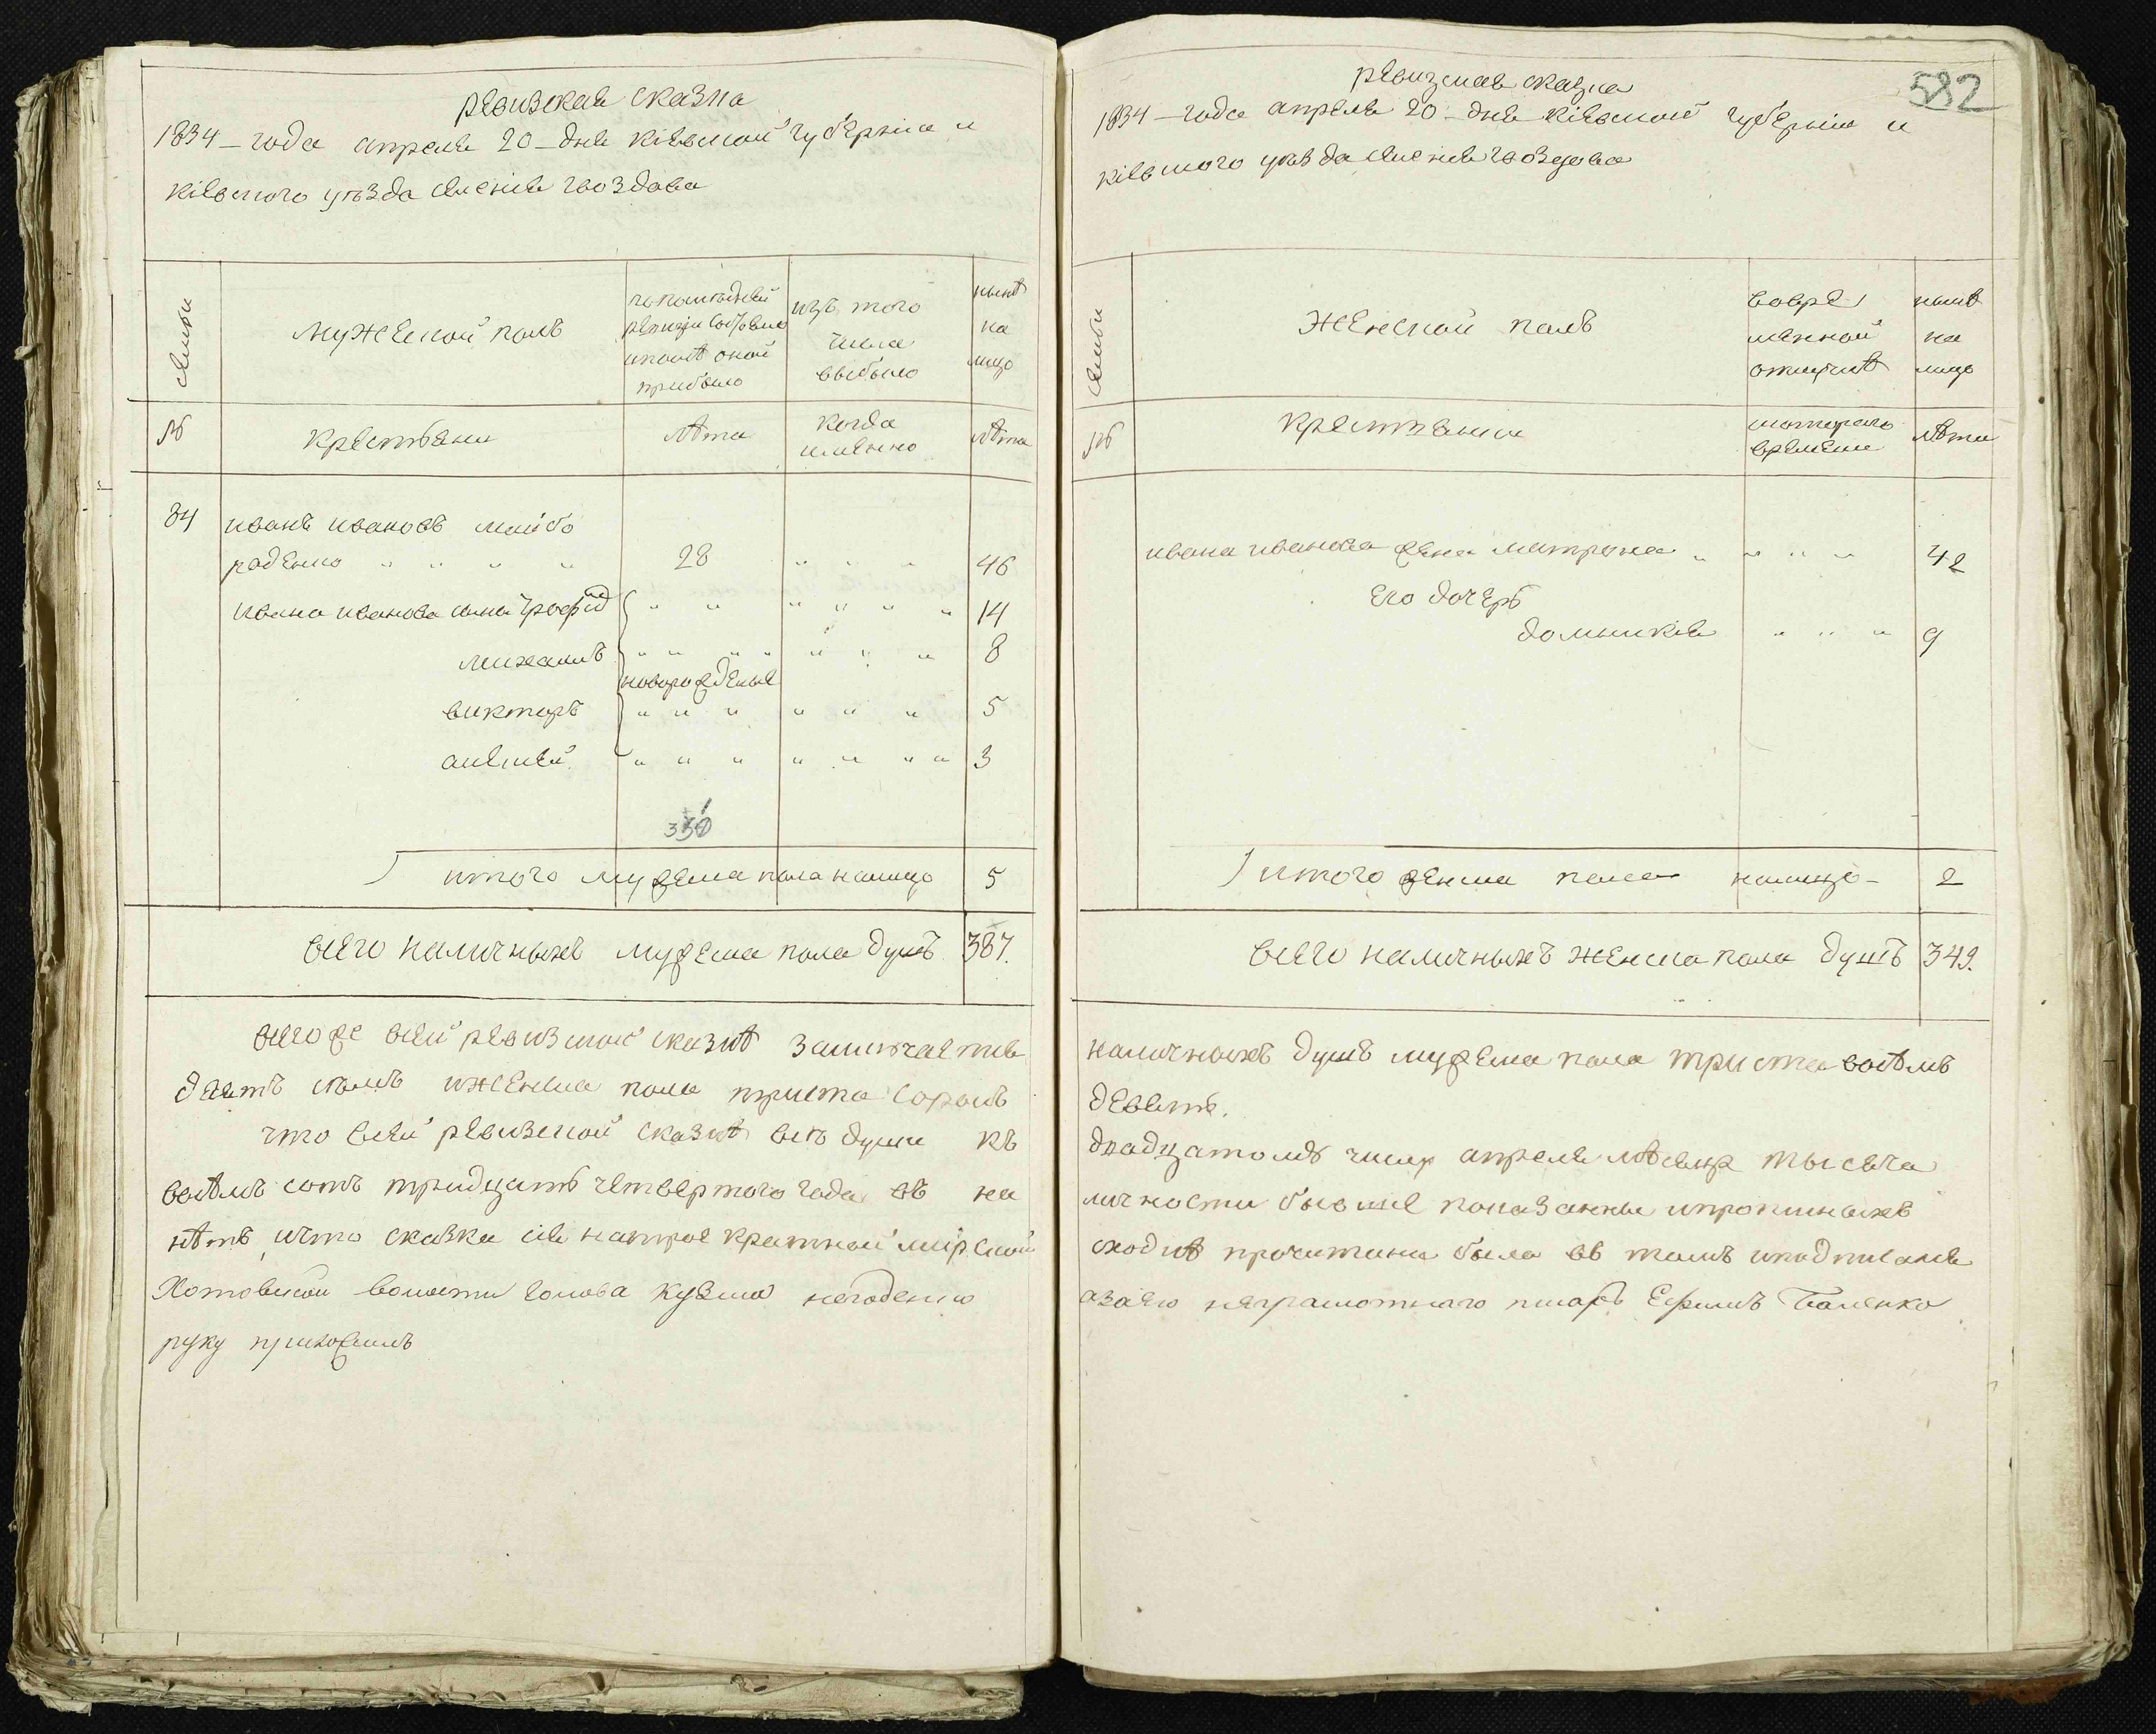 ревизская сказка
1834 – года апреля 20 – дня кіевской губерніи и
кіевского уѣзда селенія гвоздова
семьи
мужеской полъ
по последней
ревизіи состояло
и после оной
прибыло
изъ того
числа
выбыло
нынѣ
на
лицо
№
крестьяни
лѣта
когда
имянно
лѣта
84 иванъ ивановъ майбо
роденко „ „ „ „ 28 „ „ „ 46
ивана иванова сына „ „ „ „ „ „ 14
михаилъ „ „ „ „ „ „ „ 8
новорожденые
викторъ „ „ „ „ „ „ 5
алексей „ „ „ „ „ „ „ 3
итого мужеска пола налицо 5
всего наличныхъ мужеска пола душъ 387.
всего же в сей ревизской сказкѣ заключается
десятъ семь и женска пола триста сорокъ
что в сей ревизской сказкѣ всѣ души къ
восѣмъ сотъ тридцать четвертого года въ на
нѣтъ, и что сказка сія на трое кратной мірской
Хотовской волости голова кузма негоденко
руку приложилъ
582
ревизская сказка
1834 – года апреля 20 – дня кіевской губерніи и
кіевского уѣзда селенія гвоздова
семьи
женской полъ
во вре
менной
отлучкѣ
нынѣ
на
лицо
№
крестьяни
с которого
времени
лѣта
ивана иванова жена матрона „ „ „ „ 42
его дочерь
домникія „ „ „ 9
итого женска пола налицо – 2
всего наличныхъ женска пола душъ 349.
наличныхъ душъ мужеска пола триста восѣмъ
девять.
двадцатому числу апреля мѣсяца тысяча
личности бывшие показаны и прописныхъ
сходкѣ прочитана была въ томъ и подписался
а за его неграмотнаго писарь Ефимъ Баленко